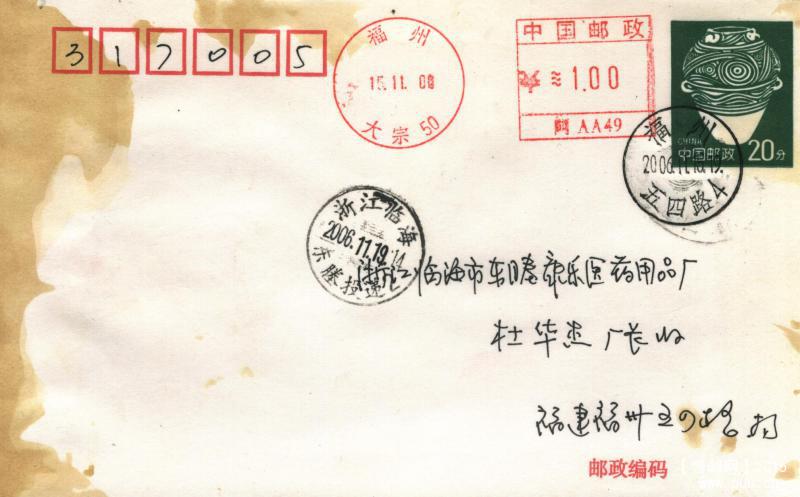 317005
福州
15.11.08
大宗 50
中国邮政
1.00
闽 AA49
CHINA
中国邮政 20分
福州
五四路
浙江临海
2006.11.19.14
东塍投递
浙江临海市东塍康乐医药用品厂
杜华杰 厂长收
福建福州五四路
邮政编码